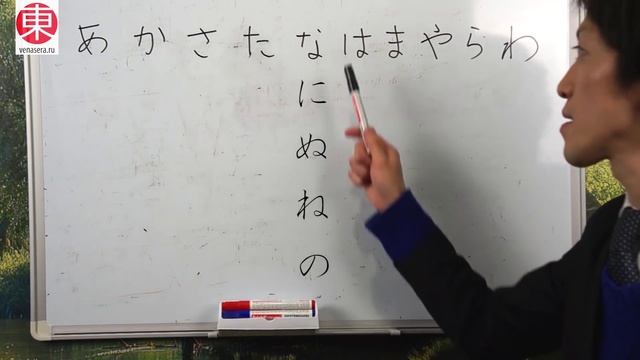 東
venasera.ru
あかさたなはまやらわ
に
ぬ
ね
の